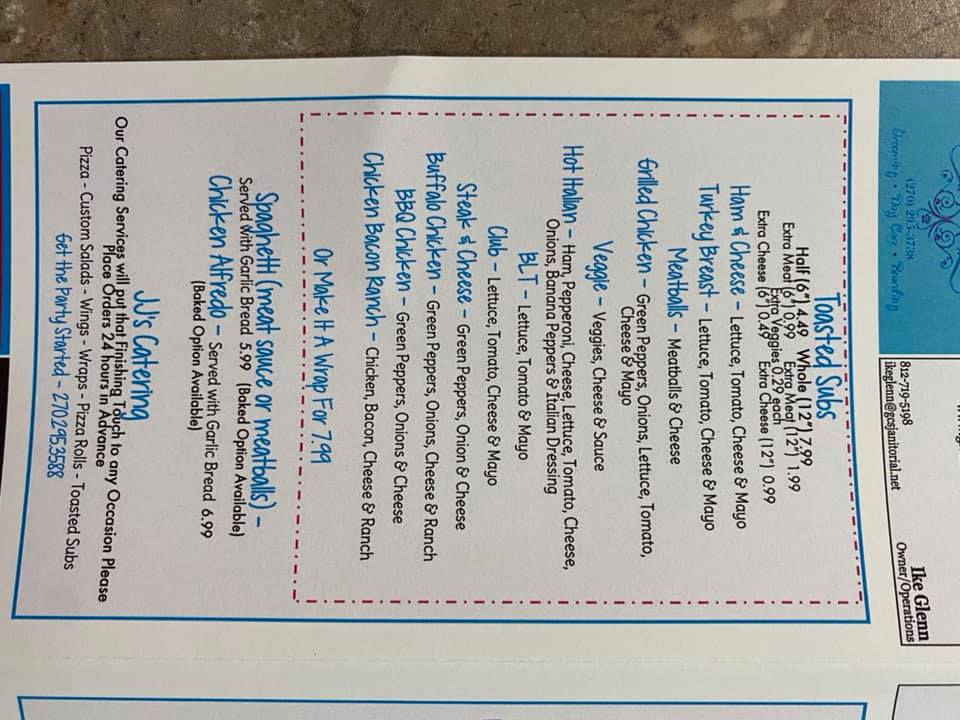 Grooming • Day Care • Boarding
812-719-5198
ikeglenn@gosjanitorial.net
Ike Glenn
Owner/Operations
Toasted Subs
Half (6") 4.49 Whole (12") 7.99
Extra Meat (6") 0.99 Extra Meat (12") 1.99
Extra Veggies 0.29 each
Extra Cheese (6") 0.49 Extra Cheese (12") 0.99
Ham & Cheese – Lettuce, Tomato, Cheese & Mayo
Turkey Breast – Lettuce, Tomato, Cheese & Mayo
Meatballs – Meatballs & Cheese
Grilled Chicken – Green Peppers, Onions, Lettuce, Tomato,
Cheese & Mayo
Veggie – Veggies, Cheese & Sauce
Hot Italian – Ham, Pepperoni, Cheese, Lettuce, Tomato, Cheese,
Onions, Banana Peppers & Italian Dressing
BLT – Lettuce, Tomato & Mayo
Club – Lettuce, Tomato, Cheese & Mayo
Steak & Cheese – Green Peppers, Onion & Cheese
Buffalo Chicken – Green Peppers, Onions, Cheese & Ranch
BBQ Chicken – Green Peppers, Onions & Cheese
Chicken Bacon Ranch – Chicken, Bacon, Cheese & Ranch
Or Make It A Wrap For 7.99
Spaghetti (meat sauce or meatballs) –
Served with Garlic Bread 5.99 (Baked Option Available)
Chicken Alfredo – Served with Garlic Bread 6.99
(Baked Option Available)
JJ's Catering
Our Catering Services will put that Finishing Touch to any Occasion Please
Place Orders 24 hours in Advance
Pizza – Custom Salads – Wings – Wraps – Pizza Rolls – Toasted Subs
Get the Party Started – 2702953588